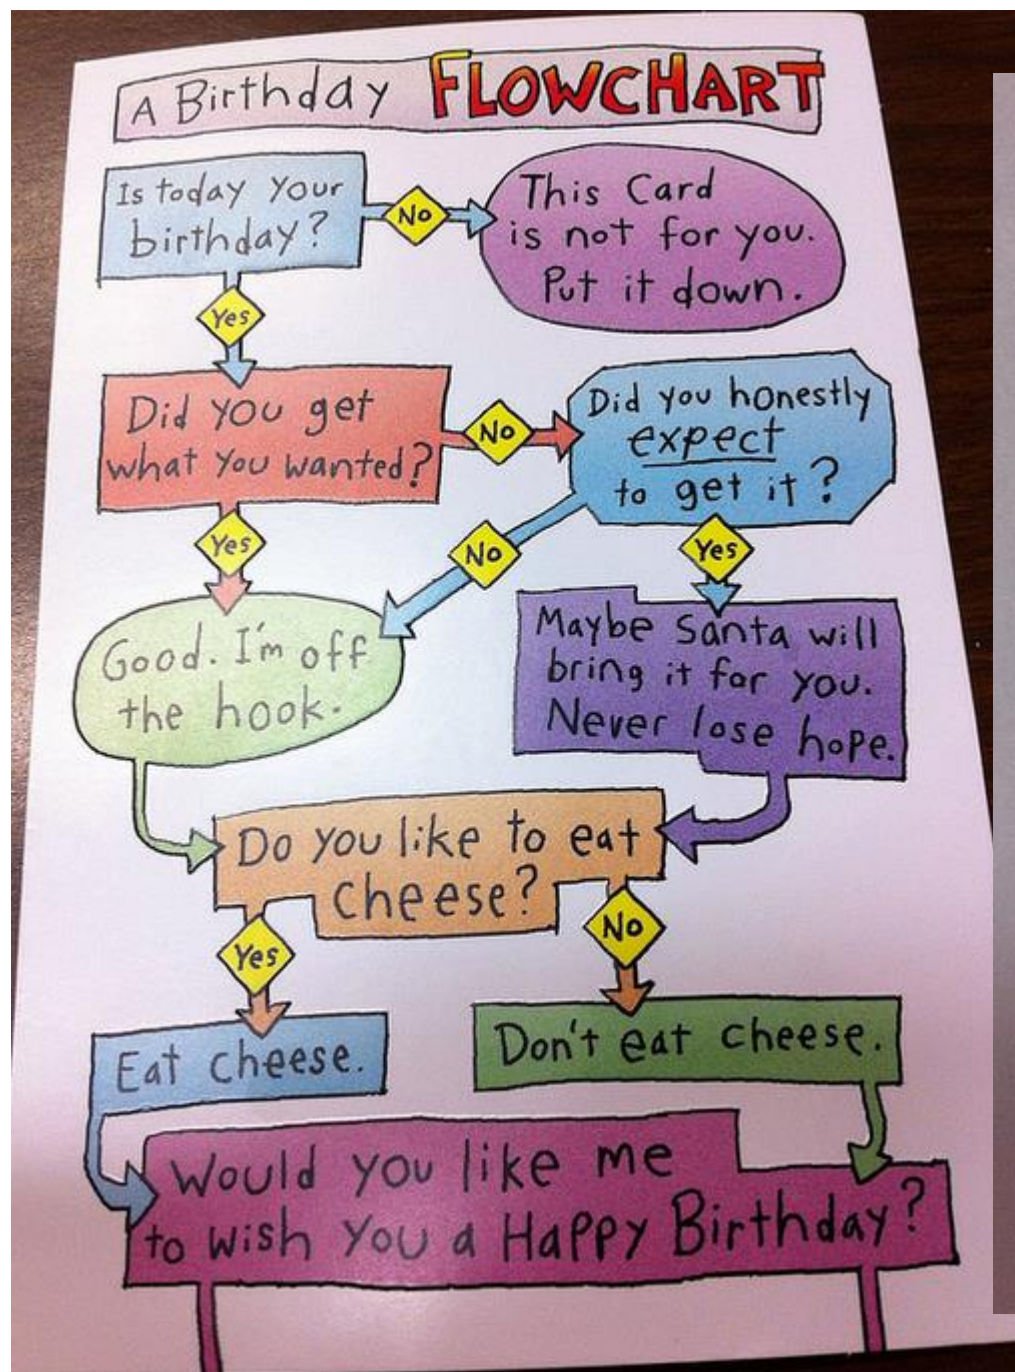 A Birthday FLOWCHART
Is today your
birthday?
No
This Card
is not for you.
Put it down.
Yes
Did you get
what you wanted?
No
Did you honestly
expect
to get it?
Yes
No
Yes
Good. I'm off
the hook.
Maybe Santa will
bring it for you.
Never lose hope.
Do you like to eat
cheese?
Yes
No
Eat cheese.
Don't eat cheese.
Would you like me
to wish you a Happy Birthday?